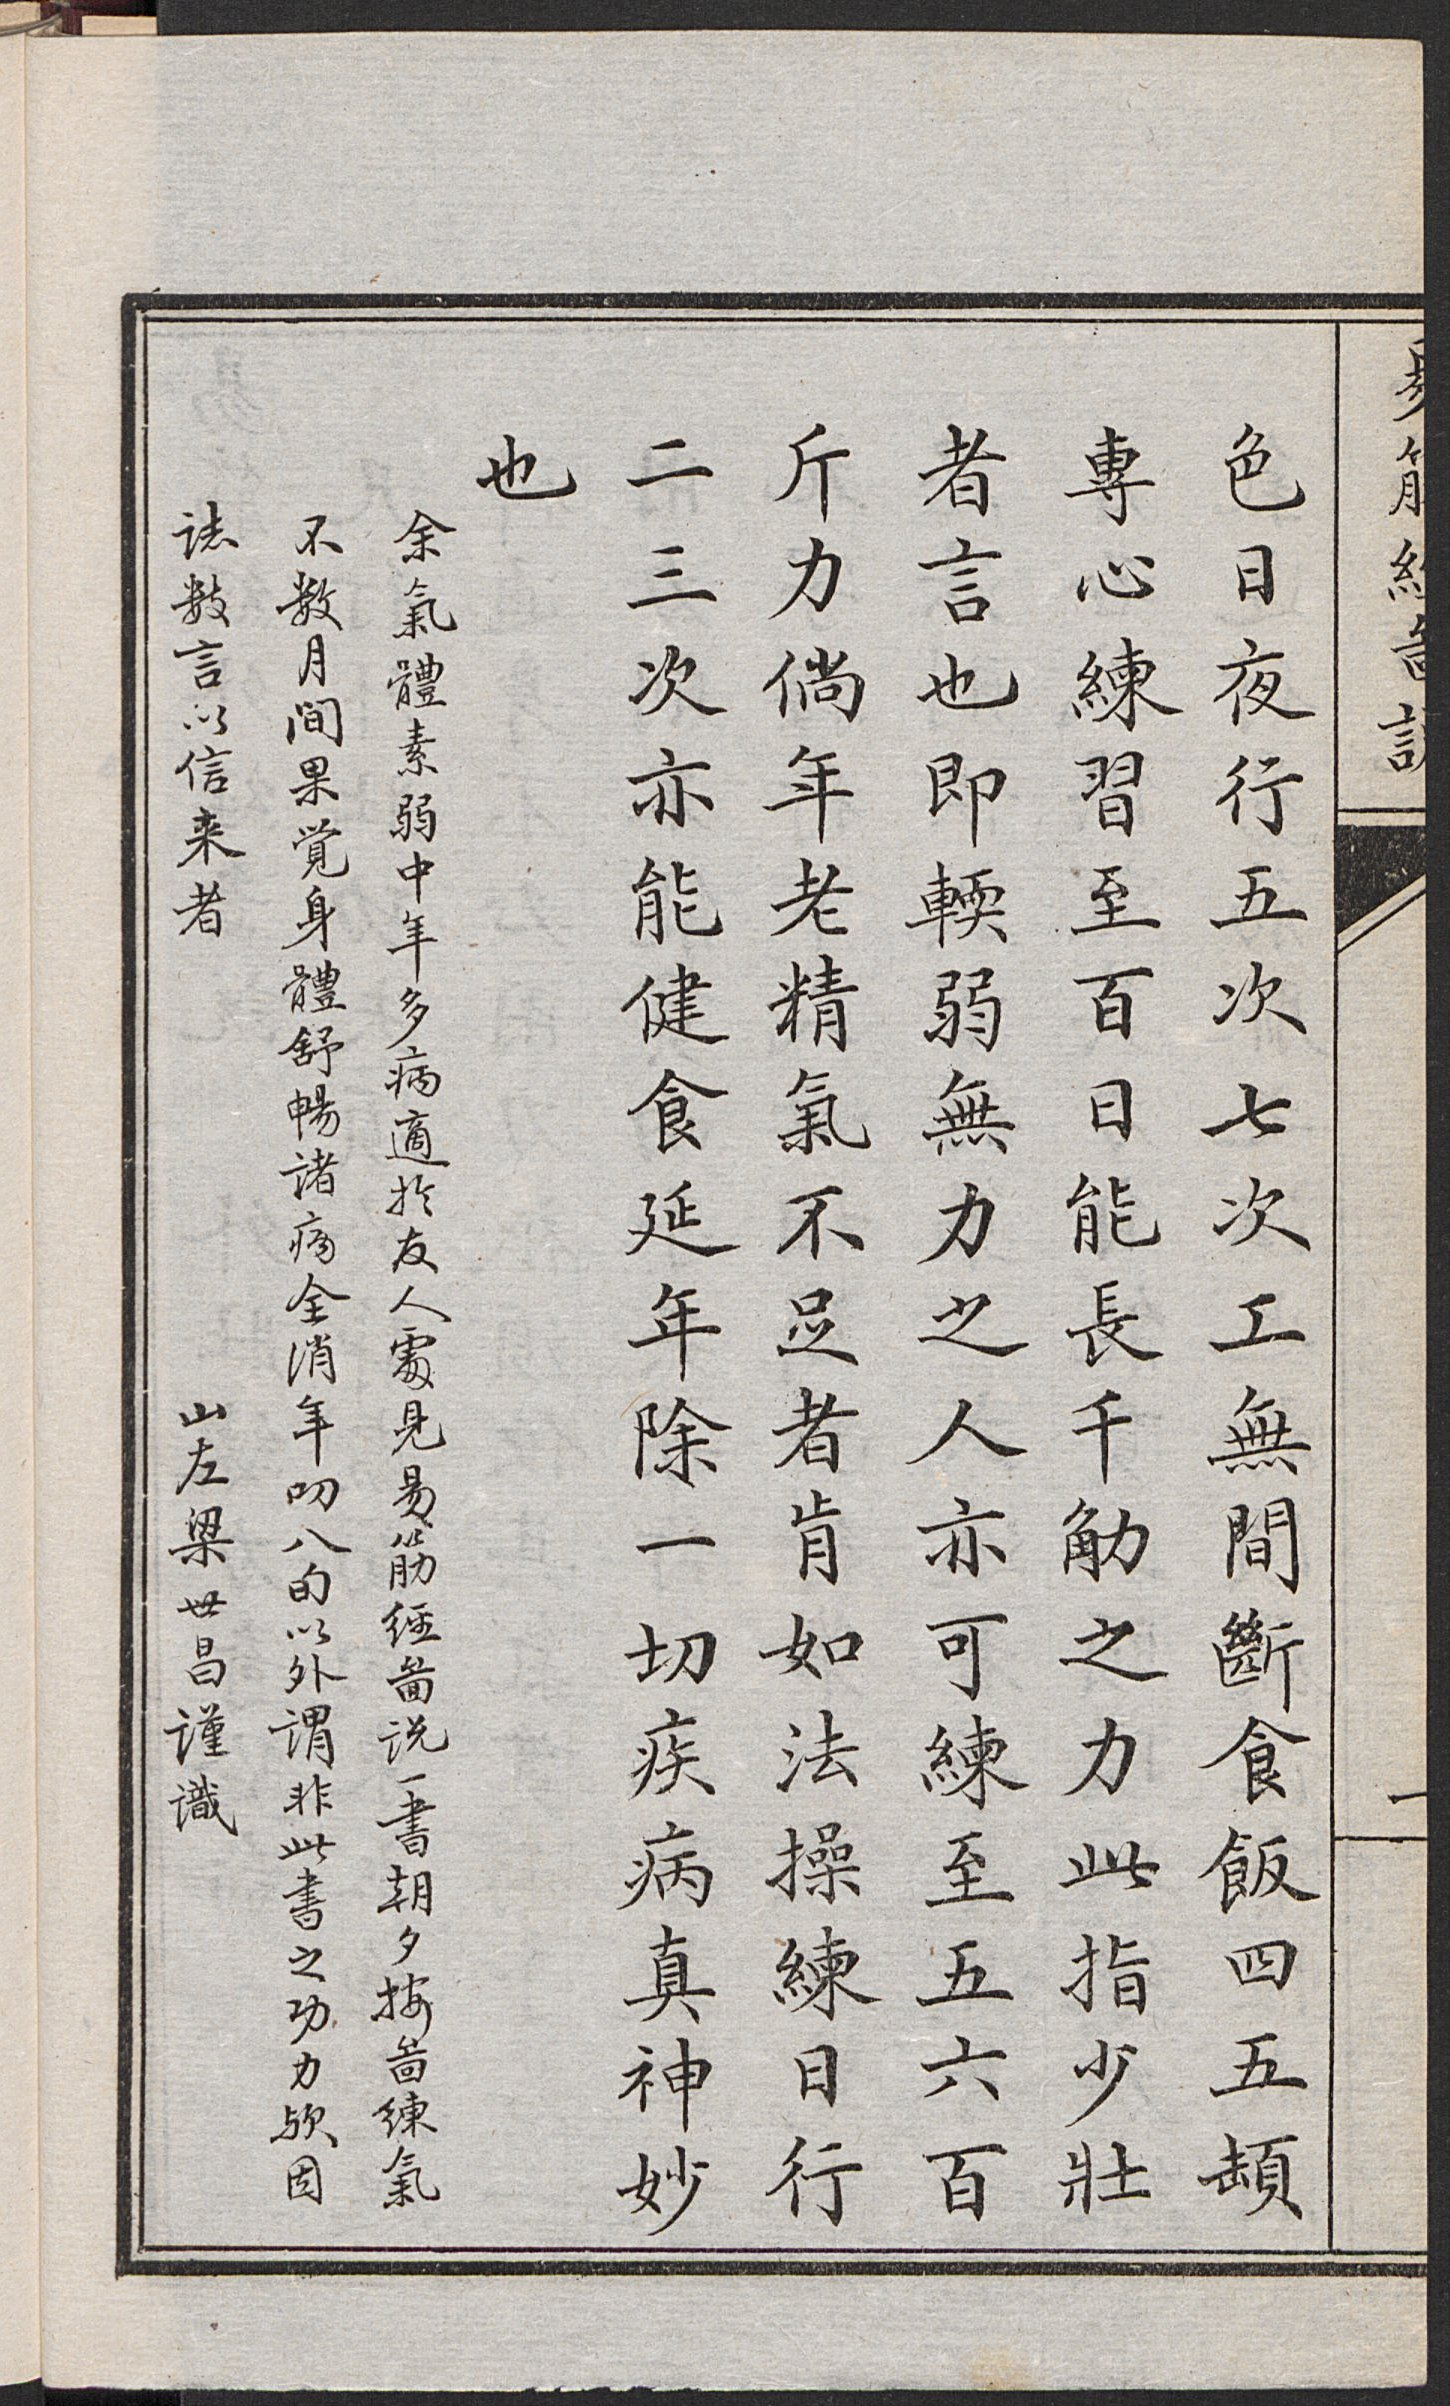 易筋經圖說
一
色日夜行五次七次工無間斷食飯四五頓
專心練習至百日能長千觔之力此指少壯
者言也即輭弱無力之人亦可練至五六百
斤力倘年老精氣不足者肯如法操練日行
二三次亦能健食延年除一切疾病真神妙
也
余氣體素弱中年多病適於友人處見易筋經啚说一書朝夕按啚練氣
不数月間果覺身體舒暢諸病全消年叨八旬以外謂非此書之功力欤因
誌数言以信来者
山左梁世昌谨識